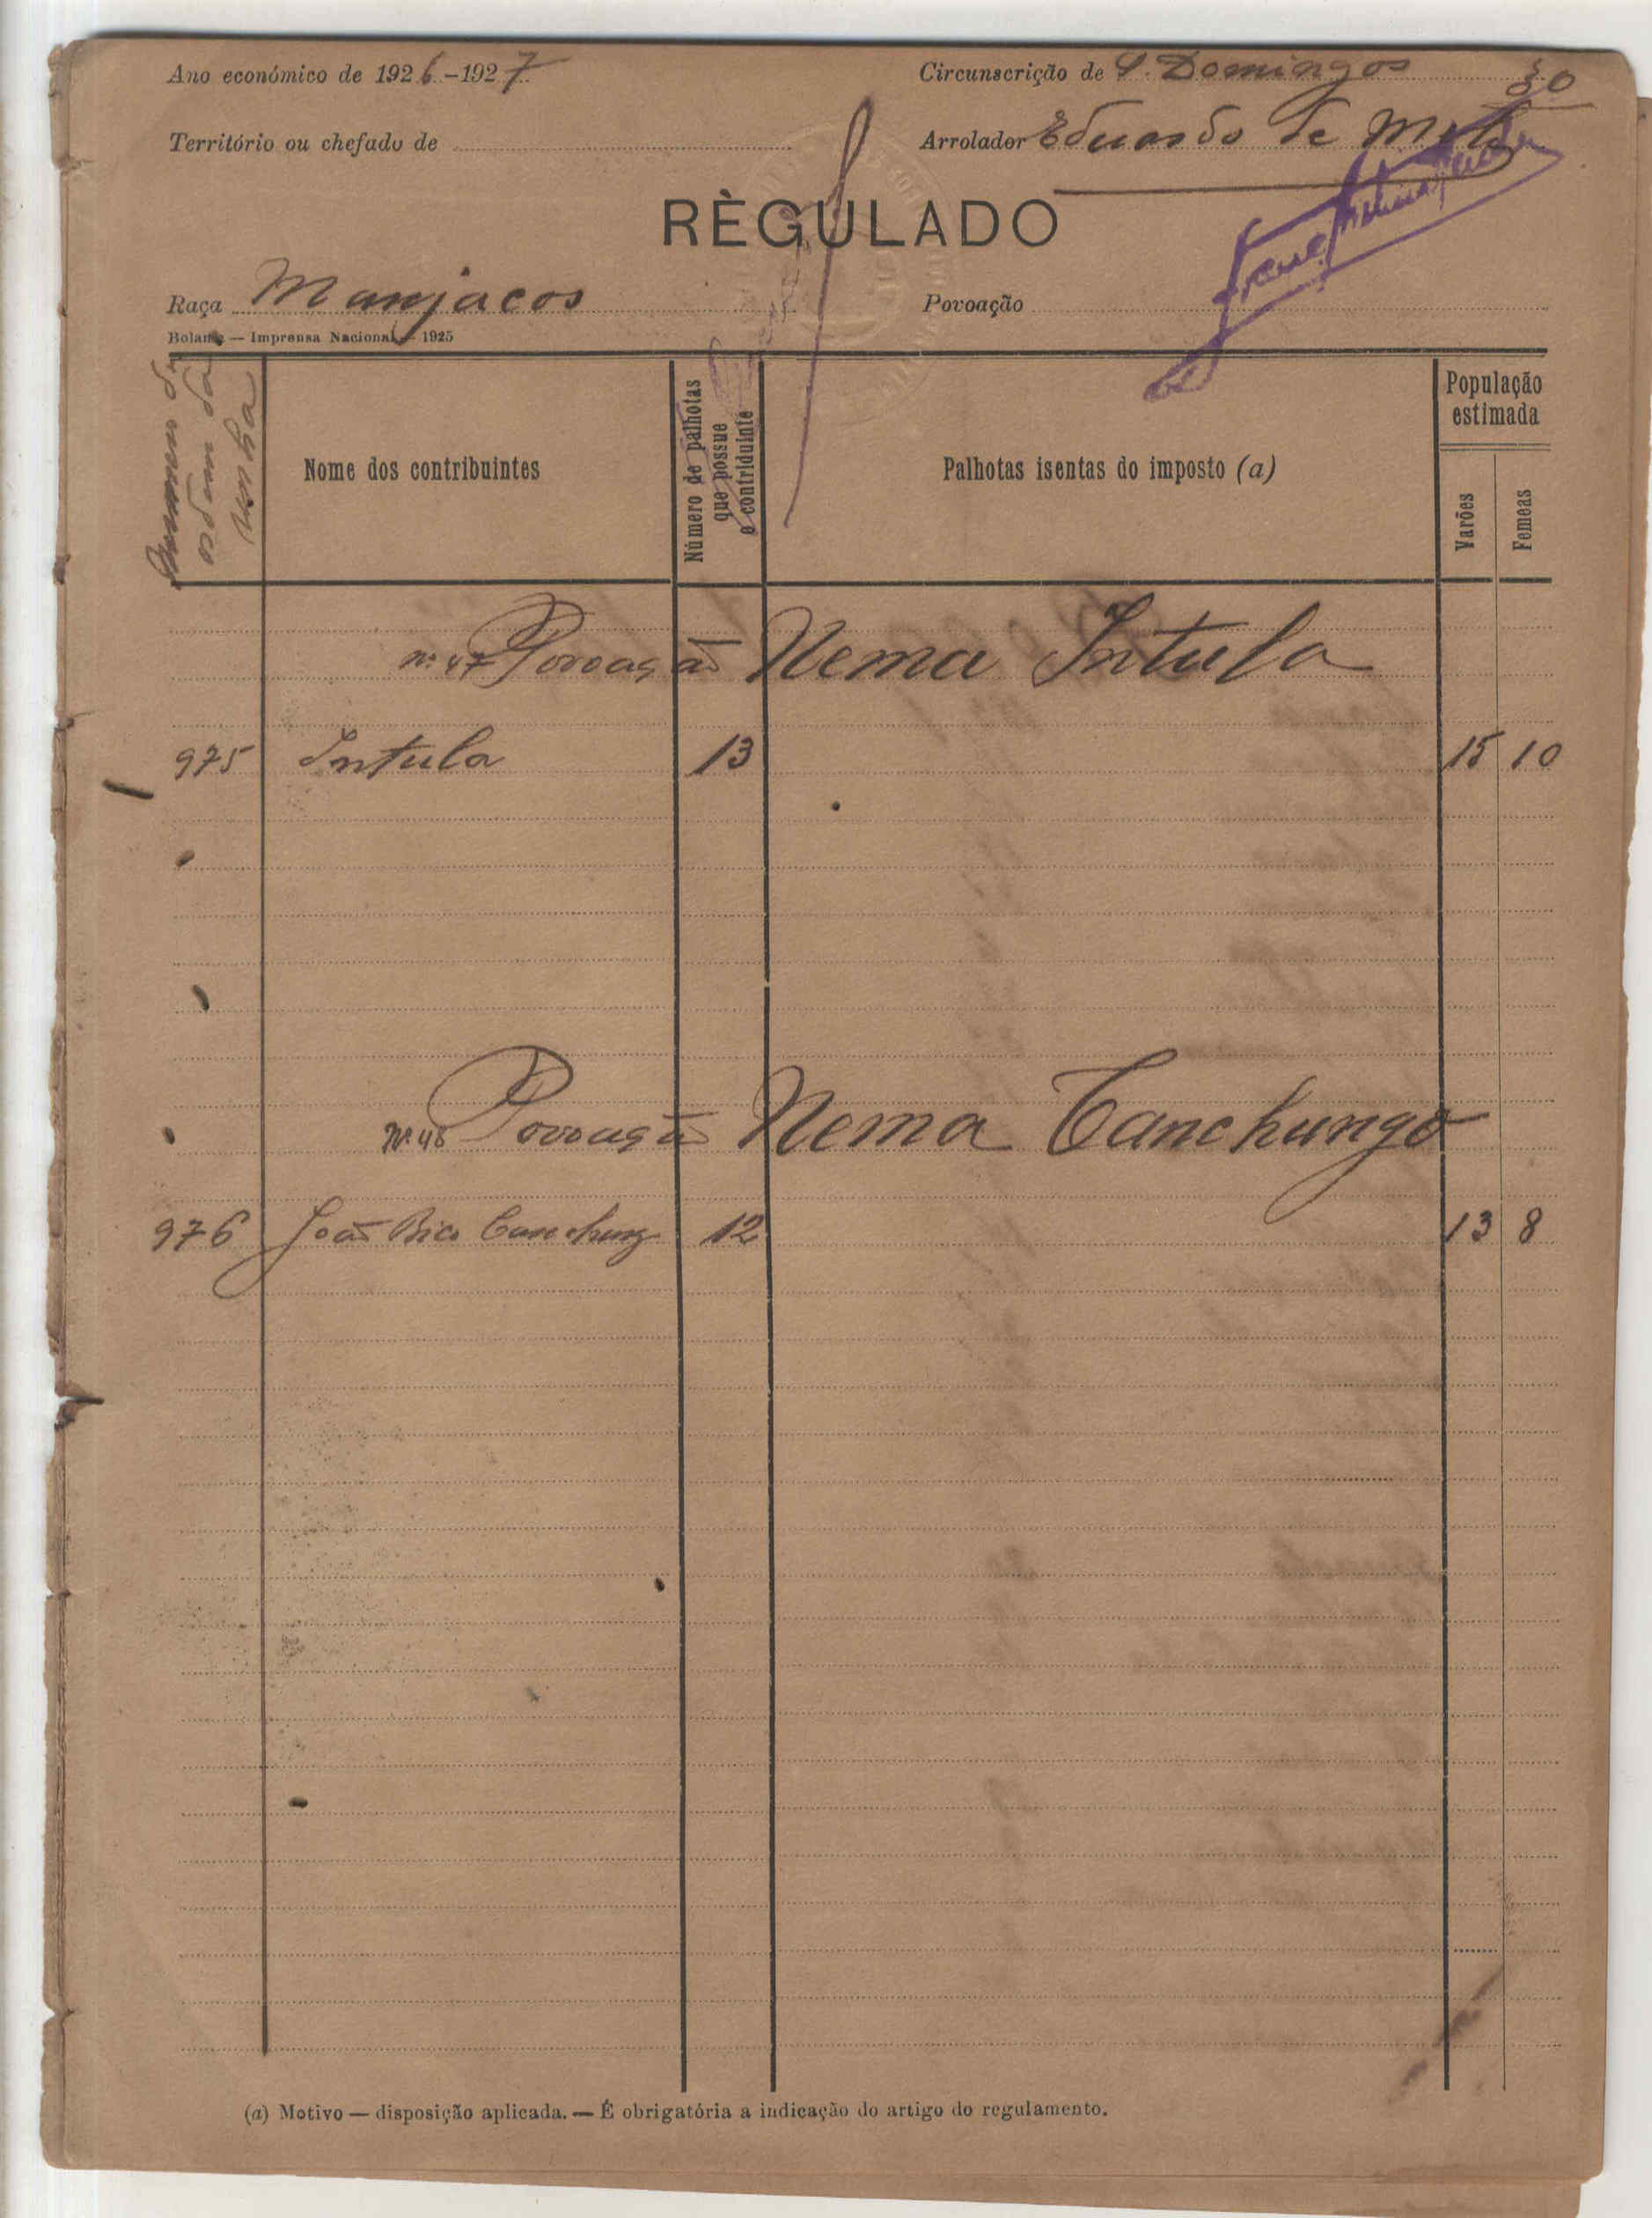 Ano económico de 1926-1927
Circunscrição de S. Domingos
30
Território ou chefado de
Arrolador Eduardo de Melo
RÈGULADO
Raça Manjacos
Povoação
Bolama — Imprensa Nacional — 1925
Nome dos contribuintes
Número de palhotas que possue o contriduinte
Palhotas isentas do imposto (a)
População estimada
Varões
Femeas
Nº 47 Povoação Nema Intula
975 Intula 13 15 10
Nº 48 Povoação Nema Canchungo
976 João Bico Canchung 12 13 8
(a) Motivo — disposição aplicada. — É obrigatória a indicação do artigo do regulamento.